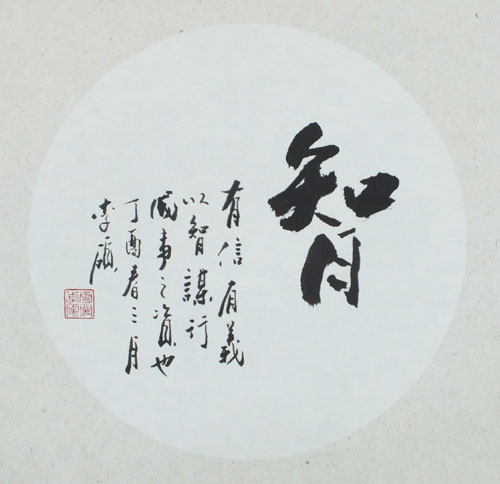 智
有信有義
以智謀行
成事之資也
丁酉春三月
李碩